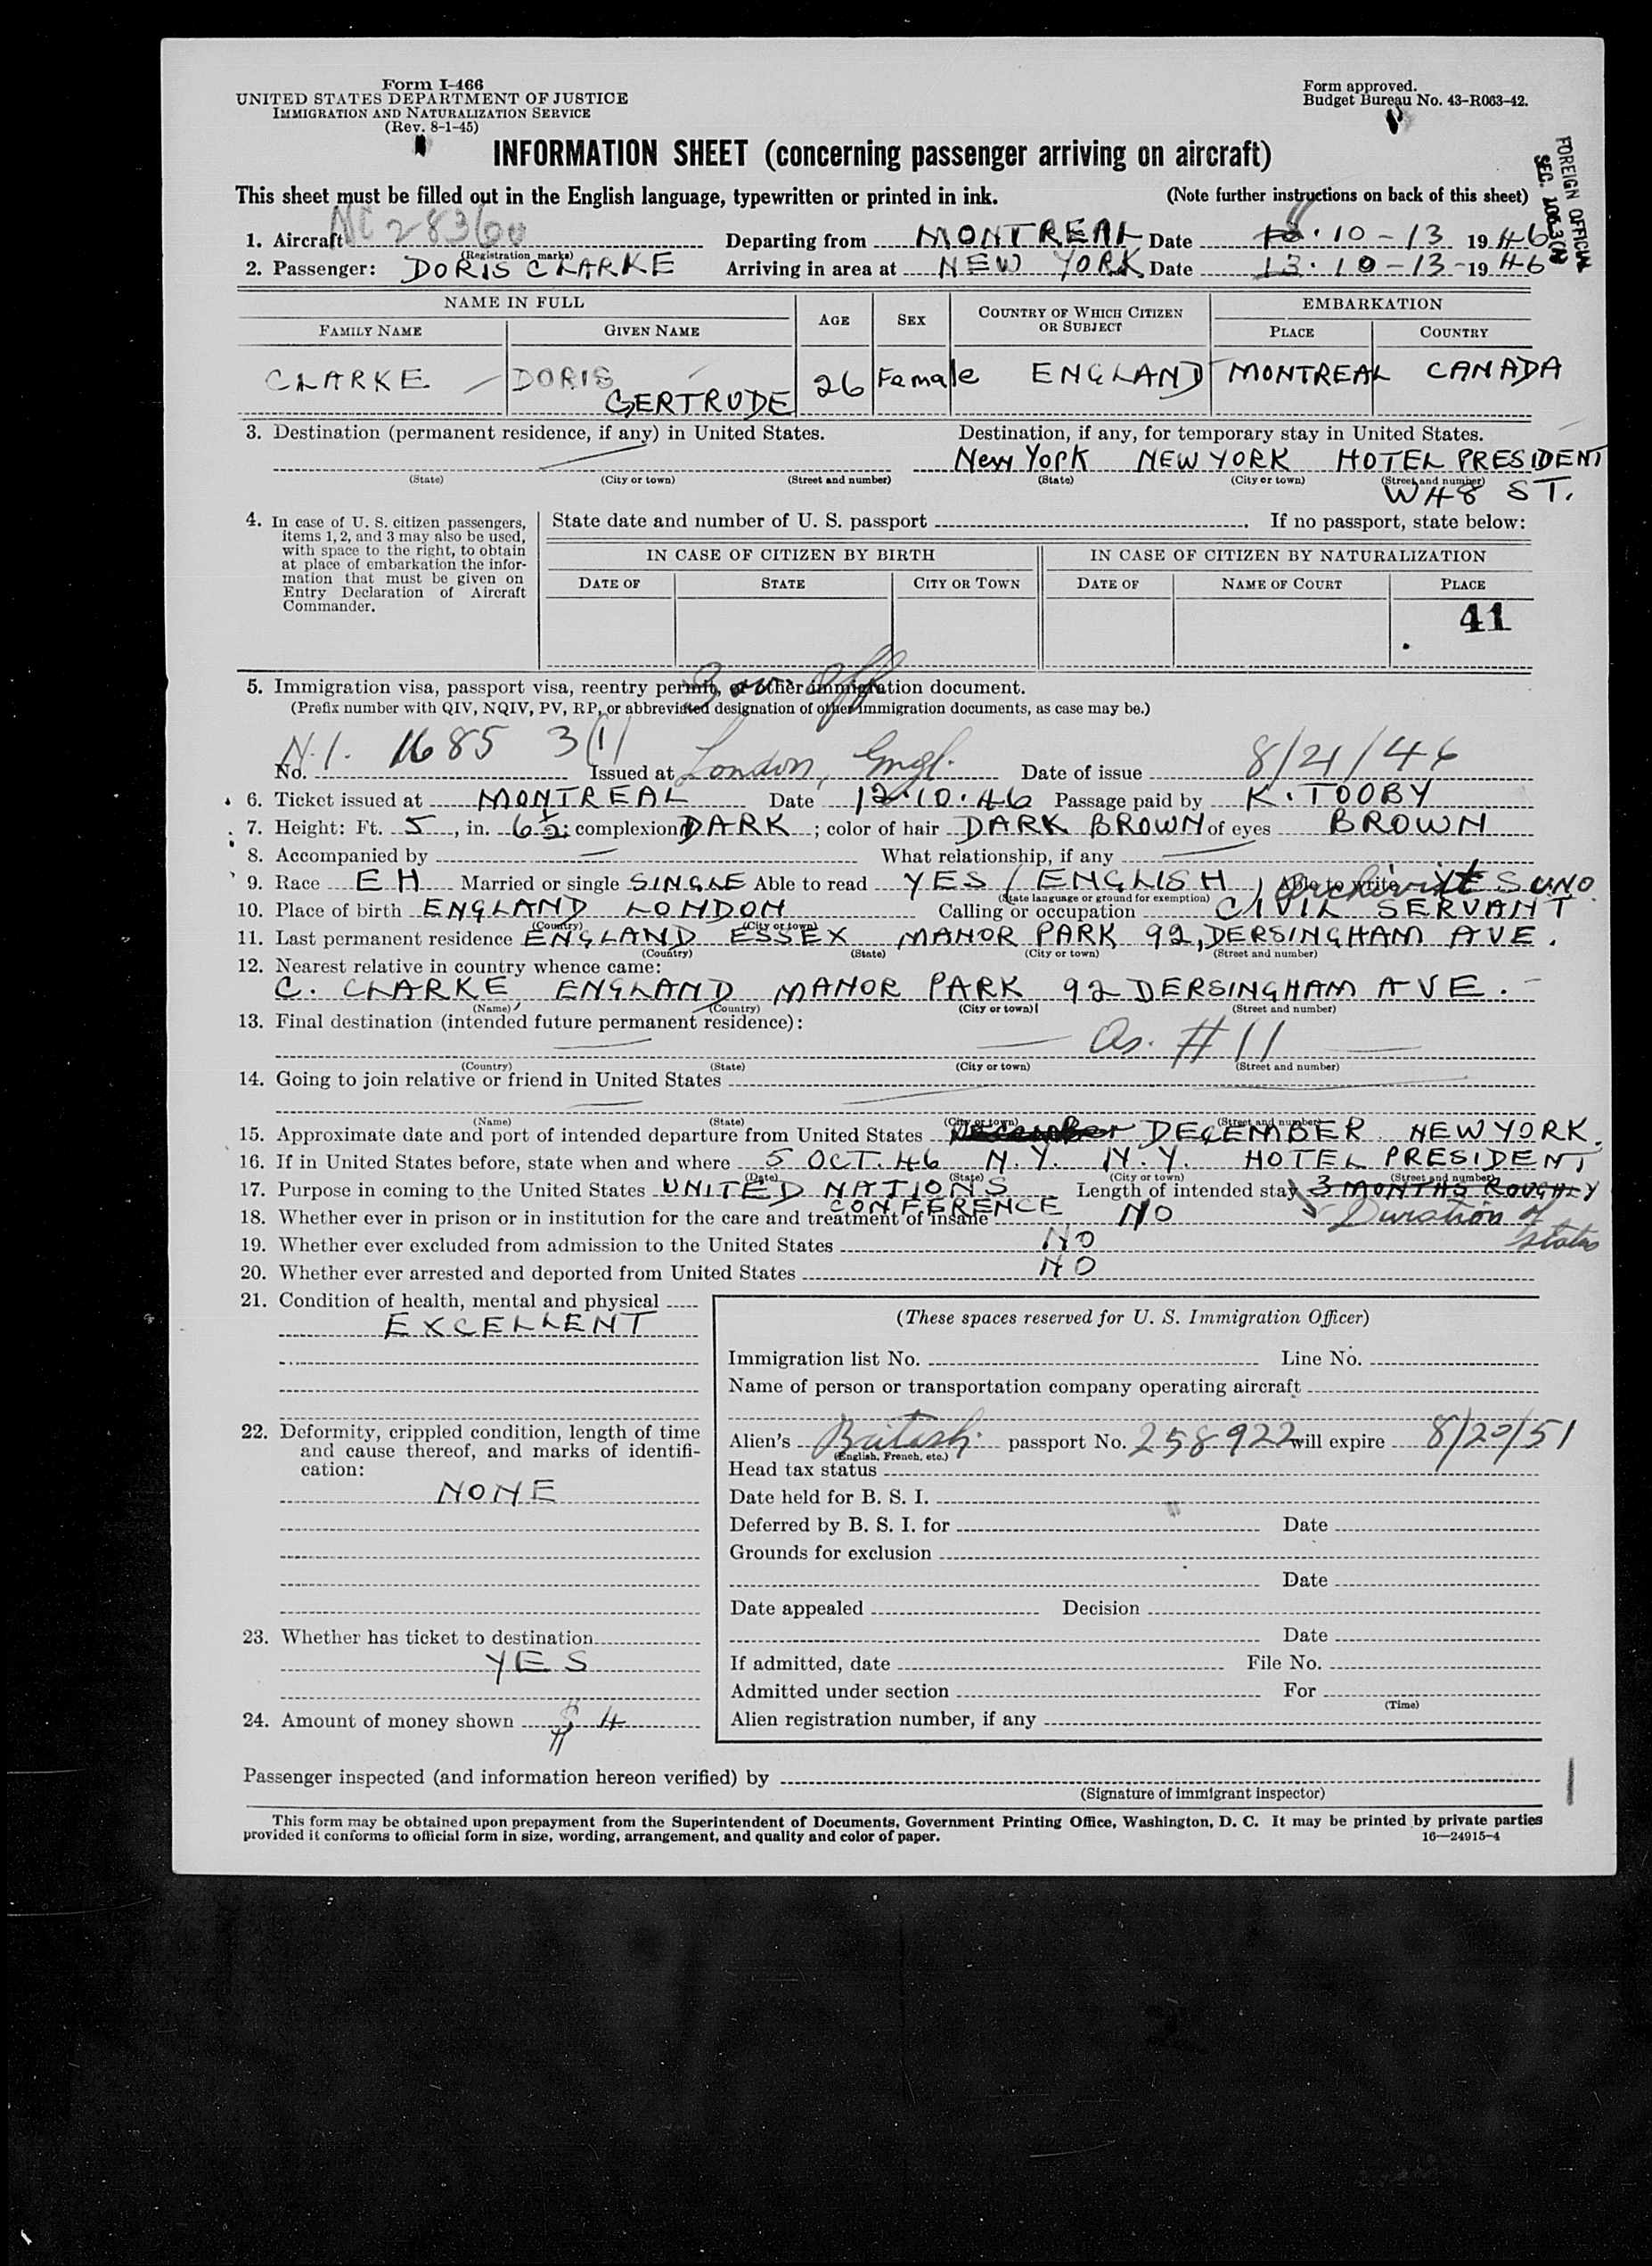 Form I-466
UNITED STATES DEPARTMENT OF JUSTICE
IMMIGRATION AND NATURALIZATION SERVICE
(Rev. 8-1-45)
Form approved.
Budget Bureau No. 43-R063-42.
INFORMATION SHEET (concerning passenger arriving on aircraft)
FOREIGN OFFICIAL
SEC.
This sheet must be filled out in the English language, typewritten or printed in ink. (Note further instructions on back of this sheet)
1. Aircraft NC 28360 Departing from MONTREAL Date 10-13 1946
(Registration marks)
2. Passenger: DORIS CLARKE Arriving in area at NEW YORK Date 13.10-13-1946
NAME IN FULL AGE SEX COUNTRY OF WHICH CITIZEN OR SUBJECT EMBARKATION
FAMILY NAME GIVEN NAME PLACE COUNTRY
CLARKE DORIS GERTRUDE 26 Female ENGLAND MONTREAL CANADA
3. Destination (permanent residence, if any) in United States. Destination, if any, for temporary stay in United States.
New York NEW YORK HOTEL PRESIDENT
(State) (City or town) (Street and number) (State) (City or town) (Street and number)
W 48 ST.
4. In case of U. S. citizen passengers, items 1, 2, and 3 may also be used, with space to the right, to obtain at place of embarkation the information that must be given on Entry Declaration of Aircraft Commander.
State date and number of U. S. passport . If no passport, state below:
IN CASE OF CITIZEN BY BIRTH IN CASE OF CITIZEN BY NATURALIZATION
DATE OF STATE CITY OR TOWN DATE OF NAME OF COURT PLACE
41
5. Immigration visa, passport visa, reentry permit, or other immigration document.
(Prefix number with QIV, NQIV, PV, RP, or abbreviated designation of other immigration documents, as case may be.)
No. N.I. 1685 3(1) Issued at London, Engl. Date of issue 8/21/46
6. Ticket issued at MONTREAL Date 12.10.46 Passage paid by K. TOOBY
7. Height: Ft. 5, in. 6½; complexion DARK; color of hair DARK BROWN of eyes BROWN
8. Accompanied by — What relationship, if any —
9. Race EH Married or single SINGLE Able to read YES / ENGLISH Able to write YES
(State language or ground for exemption)
Archivist UNO.
10. Place of birth ENGLAND LONDON Calling or occupation CIVIL SERVANT
(Country) (City or town)
11. Last permanent residence ENGLAND ESSEX MANOR PARK 92, DERSINGHAM AVE.
(Country) (State) (City or town) (Street and number)
12. Nearest relative in country whence came:
C. CLARKE, ENGLAND MANOR PARK 92 DERSINGHAM AVE.
(Name) (Country) (City or town) (Street and number)
13. Final destination (intended future permanent residence):
— — As. # 11 —
(Country) (State) (City or town) (Street and number)
14. Going to join relative or friend in United States
(Name) (State) (City or town) (Street and number)
15. Approximate date and port of intended departure from United States December DECEMBER NEW YORK.
16. If in United States before, state when and where 5 OCT. 46 N.Y. N.Y. HOTEL PRESIDENT
(Date) (State) (City or town) (Street and number)
17. Purpose in coming to the United States UNITED NATIONS CONFERENCE Length of intended stay 3 MONTHS ROUGHLY
Duration of status
18. Whether ever in prison or in institution for the care and treatment of insane NO
19. Whether ever excluded from admission to the United States NO
20. Whether ever arrested and deported from United States NO
21. Condition of health, mental and physical
EXCELLENT
22. Deformity, crippled condition, length of time and cause thereof, and marks of identification:
NONE
23. Whether has ticket to destination
YES
24. Amount of money shown $ 4
(These spaces reserved for U. S. Immigration Officer)
Immigration list No. Line No.
Name of person or transportation company operating aircraft
Alien's British passport No. 258922 will expire 8/20/51
(English, French, etc.)
Head tax status
Date held for B. S. I.
Deferred by B. S. I. for Date
Grounds for exclusion
Date
Date appealed Decision
Date
If admitted, date File No.
Admitted under section For
(Time)
Alien registration number, if any
Passenger inspected (and information hereon verified) by
(Signature of immigrant inspector)
This form may be obtained upon prepayment from the Superintendent of Documents, Government Printing Office, Washington, D. C. It may be printed by private parties
provided it conforms to official form in size, wording, arrangement, and quality and color of paper. 16—24915-4